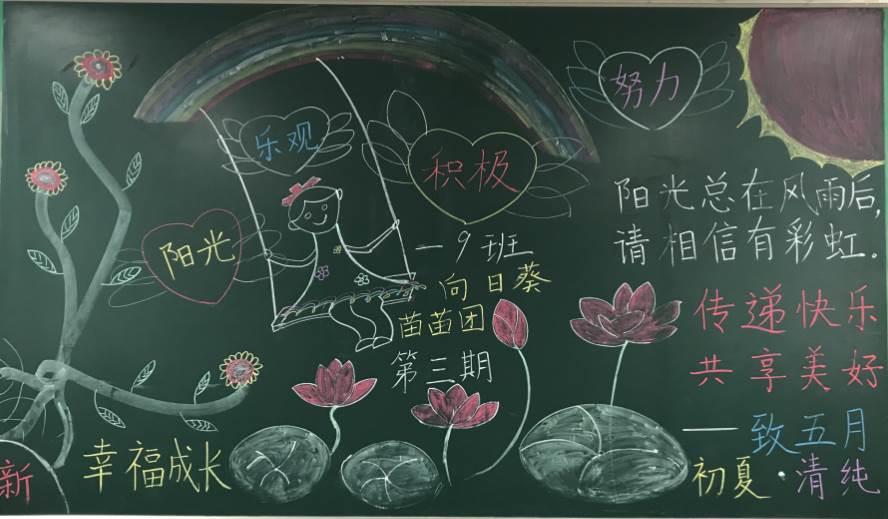 努力
乐观
积极
阳光
一9班
向日葵
苗苗团
第三期
阳光总在风雨后,
请相信有彩虹.
传递快乐
共享美好
——致五月
初夏·清纯
新
幸福成长